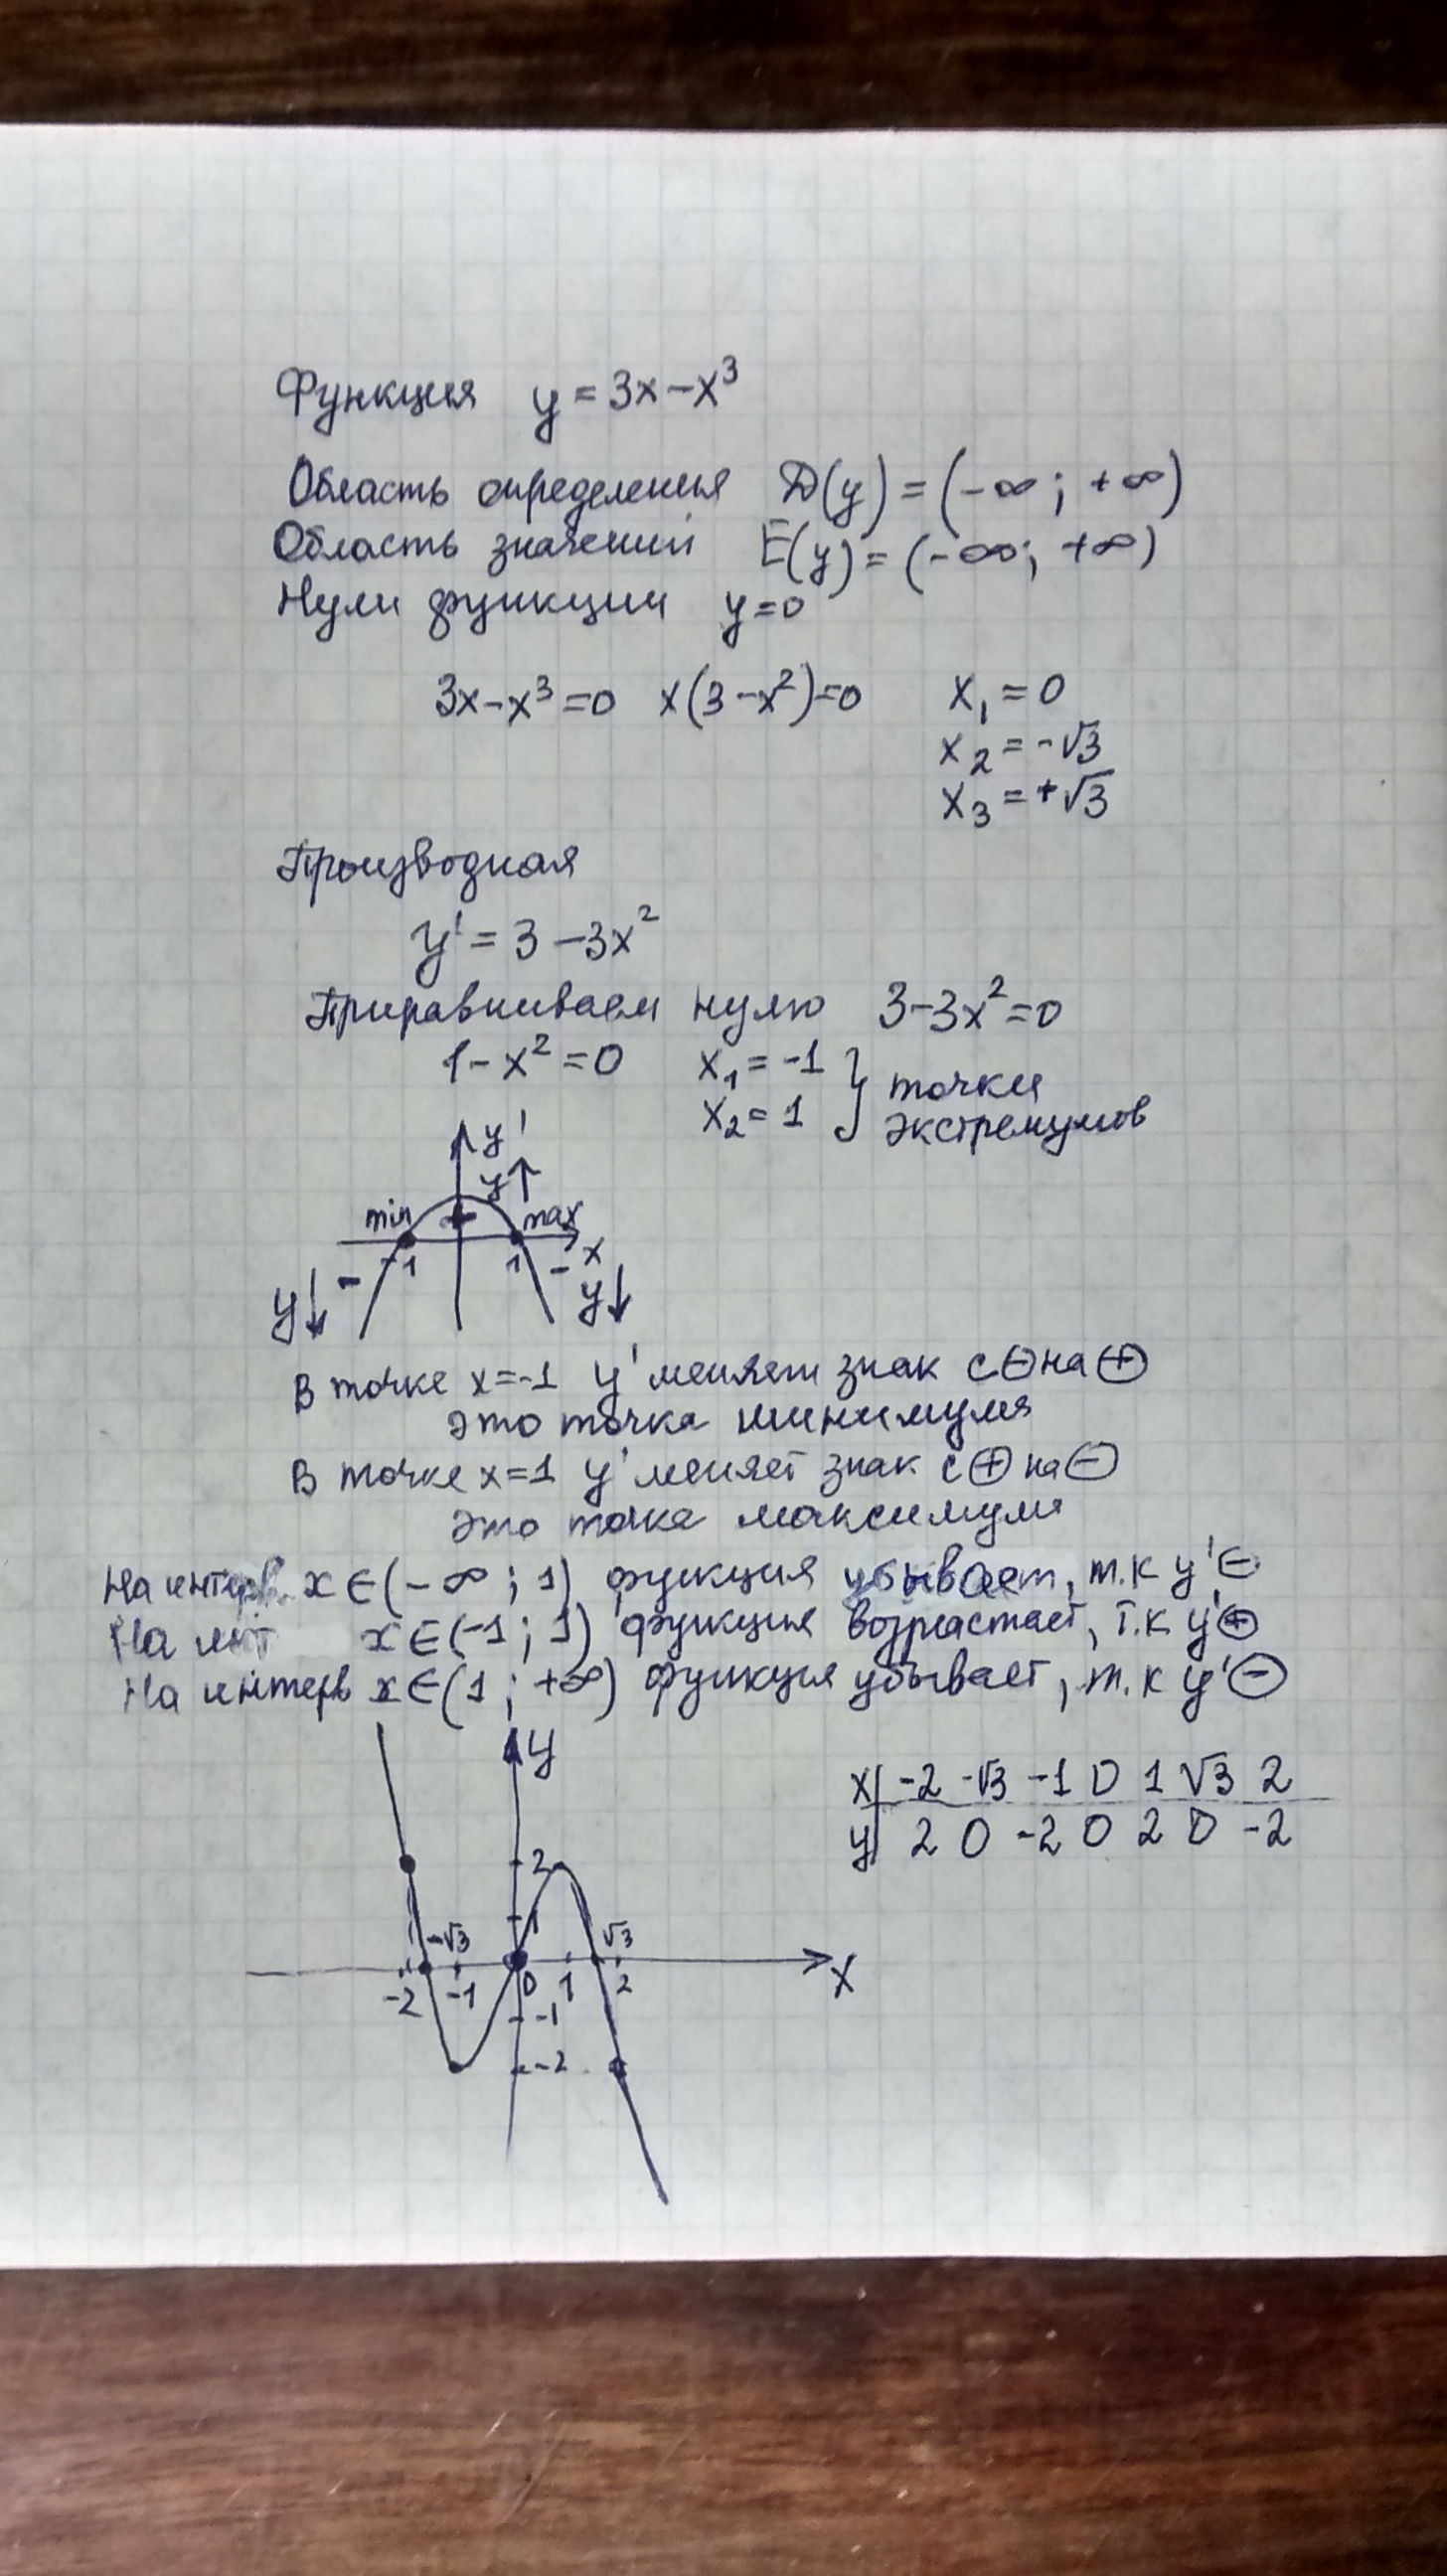 Функция y = 3x − x³
Область определения D(y) = (−∞; +∞)
Область значений E(y) = (−∞; +∞)
Нули функции y=0
3x − x³ = 0 x(3 − x²)=0 x₁ = 0
x₂ = −√3
x₃ = +√3
Производная
y' = 3 − 3x²
Приравниваем нулю 3−3x²=0
1 − x² = 0 x₁ = −1 } точки
x₂ = 1 экстремумов
y'
y↑
min + max
−1 1 x
y↓ − − y↓
В точке x=−1 y' меняет знак с ⊖ на ⊕
это точка минимума
В точке x=1 y' меняет знак с ⊕ на ⊖
это точка максимума
На интерв. x∈(−∞; 1) функция убывает, т.к y' ⊖
На инт x∈(−1; 1) функция возрастает, т.к y' ⊕
На интерв x∈(1; +∞) функция убывает, т.к y' ⊖
y
x | −2 −√3 −1 0 1 √3 2
y | 2 0 −2 0 2 0 −2
2
1
−√3 √3
−2 −1 0 1 2 x
−1
−2